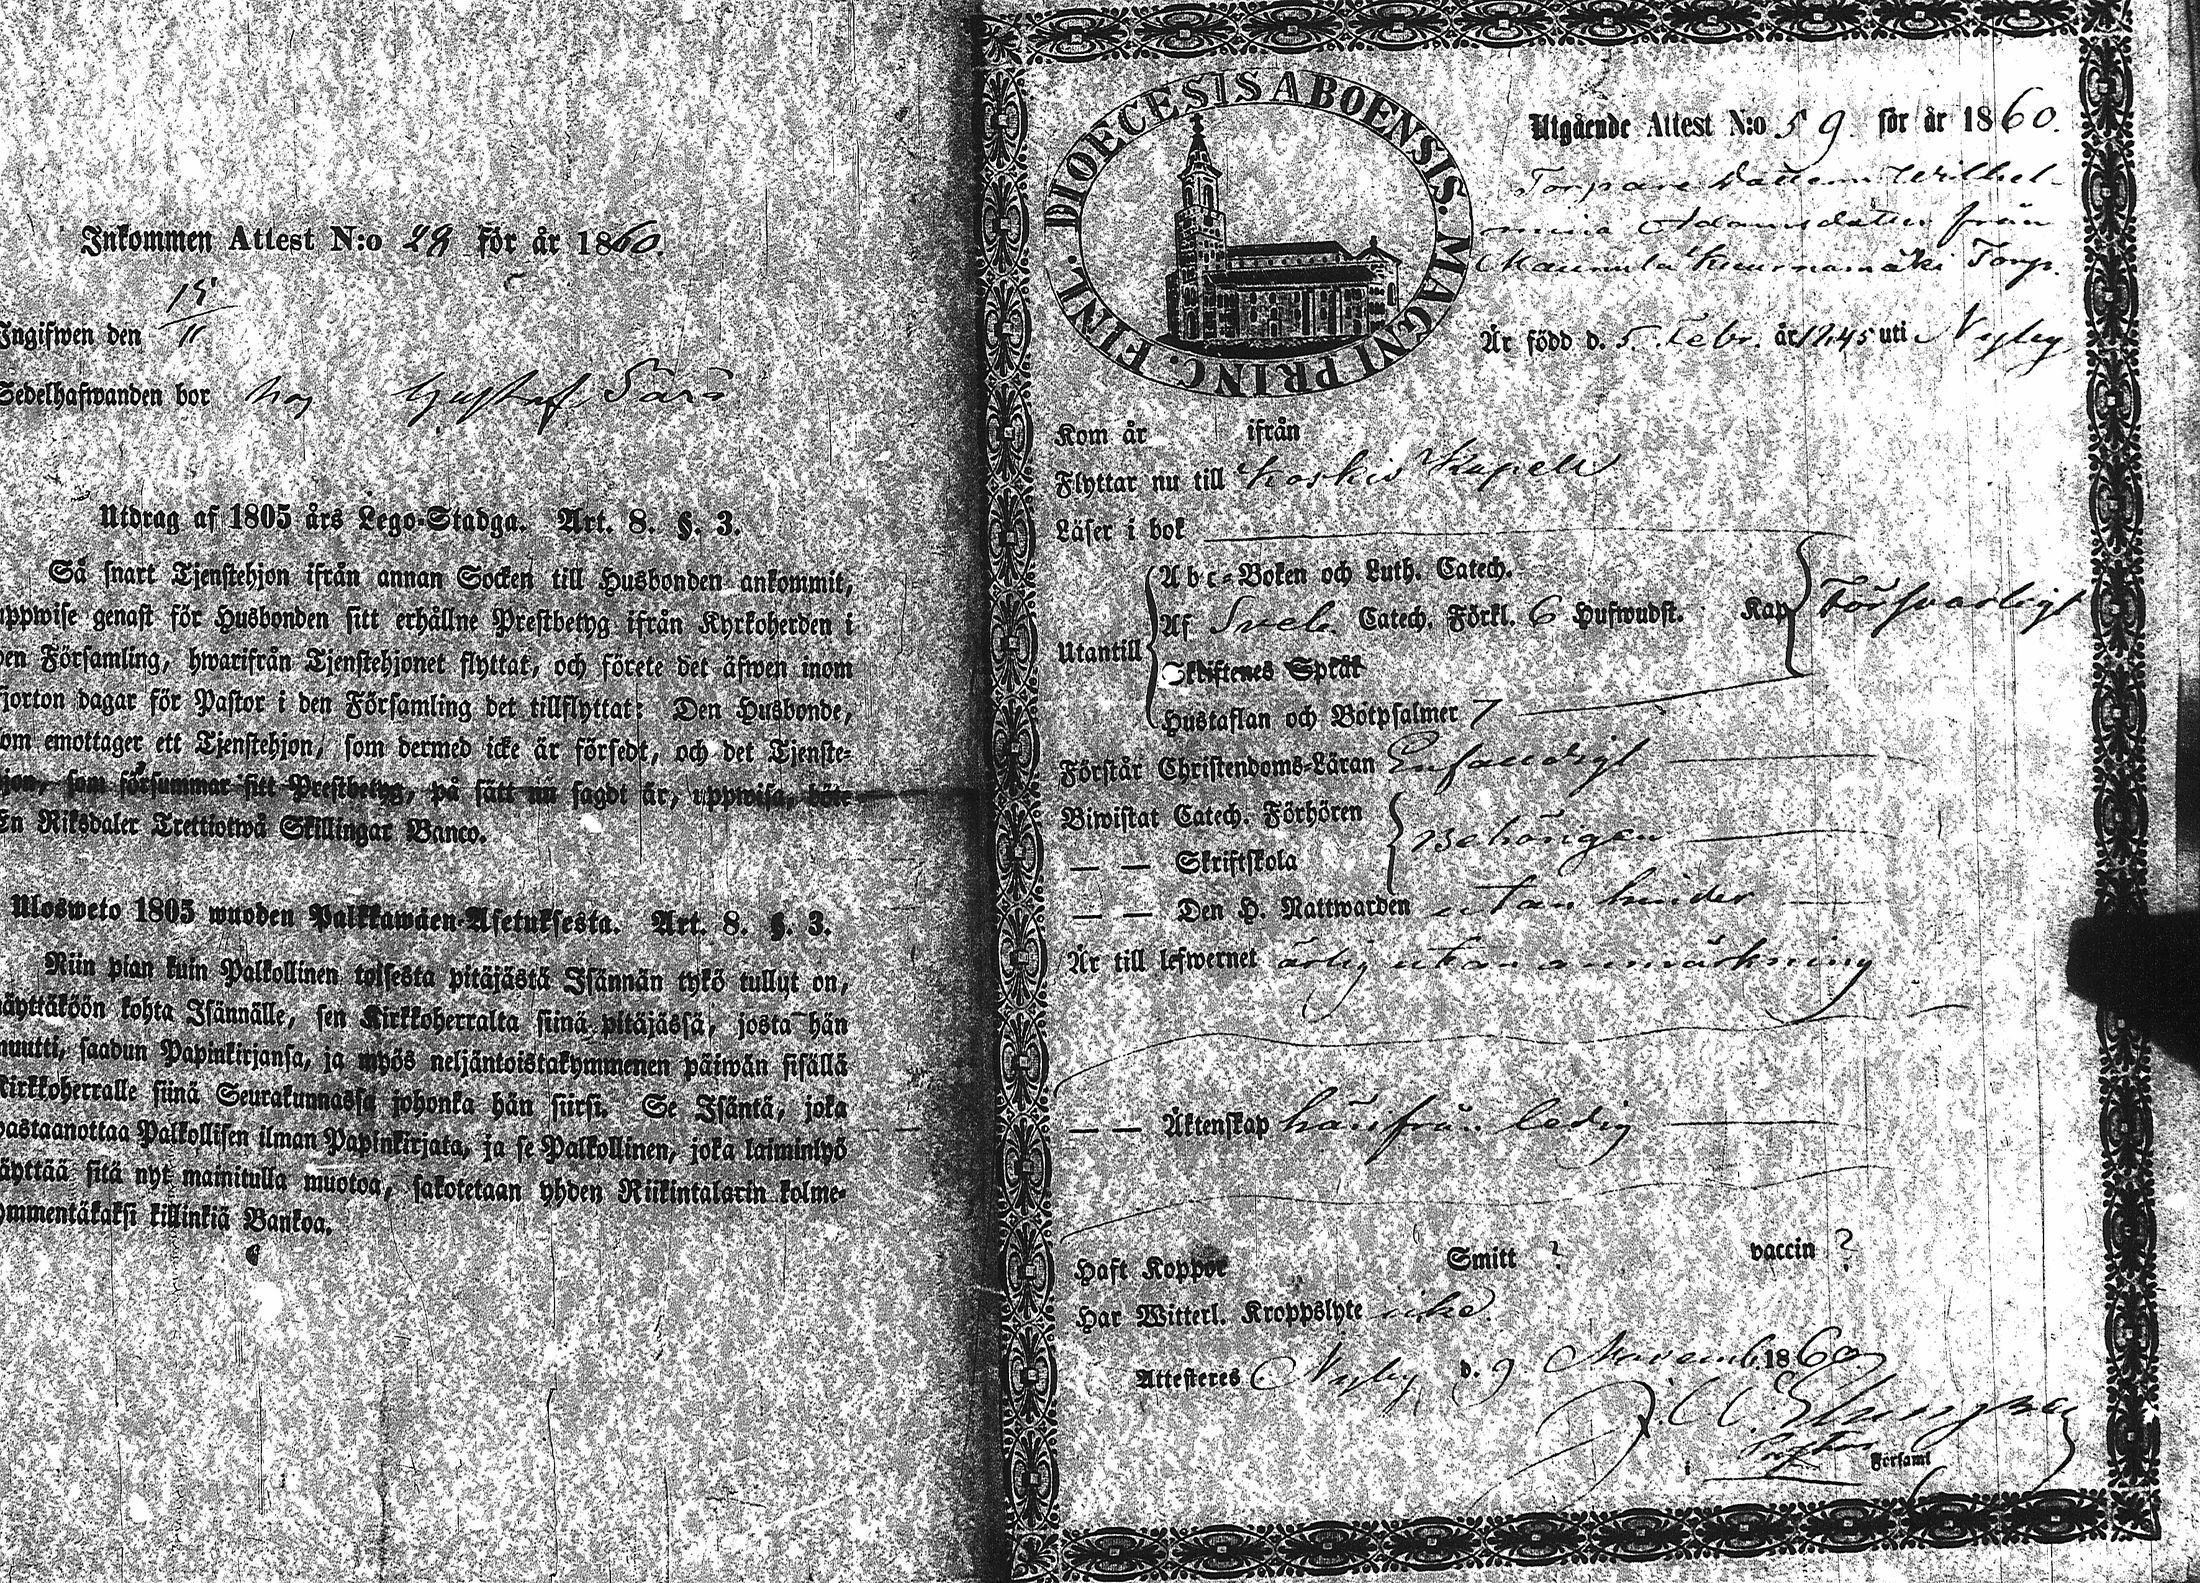 Inkommen Attest N:o 29 för år 1860.
15/11
Ingifwen den
Sedelhafwanden bor hos Gustaf
Utdrag af 1805 års Lego-Stadga. Art. 8. §. 3.
Så snart Tjenstehjon ifrån annan Socken till Husbonden ankommit,
uppwise genast för Husbonden sitt erhållne Prestbetyg ifrån Kyrkoherden i
den Församling, hwarifrån Tjenstehjonet flyttat, och förete det äfwen inom
fjorton dagar för Pastor i den Församling det tillflyttat: Den Husbonde,
som emottager ett Tjenstehjon, som dermed icke är försedt, och det Tjenste-
hjon, som försummar sitt Prestbetyg, på sätt nu sagdt är, uppwisa, böte
En Riksdaler Trettiotwå Skillingar Banco.
Ulosweto 1805 wuoden Palkkawäen-Asetuksesta. Art. 8. §. 3.
Niin pian kuin Palkollinen toisesta pitäjästä Isännän tykö tullut on,
näyttäköön kohta Isännälle, sen Kirkkoherralta siinä pitäjässä, josta hän
muutti, saadun Papinkirjansa, ja myös neljäntoistakymmenen päiwän sisällä
Kirkkoherralle siinä Seurakunnassa johonka hän siirsi. Se Isäntä, joka
wastaanottaa Palkollisen ilman Papinkirjata, ja se Palkollinen, joka laiminlyö
näyttää sitä nyt mainitulla muotoa, sakotetaan yhden Riikintalarin kolme-
kymmentäkaksi killinkiä Bankoa.
DIOECESIS ABOENSIS. MAGNI PRINC. FINL.
Utgående Attest N:o 59. för år 1860.
Torpare Dottern Wilhel-
mina Adamsdotter från
Maunula Torp.
Är född d. 5. Febr. år 1845 uti Nyby
Kom år ifrån
Flyttar nu till Koskis Kapell
Läser i bok
Utantill
Abc-Boken och Luth. Catech.
Af Sveb. Catech. Förkl. 6 Hufwudst. Kap
Försvarligt
Skriftenes Språk
Hustaflan och Botpsalmer 7
Förstår Christendoms-Läran Enfaldigt
Biwistat Catech. Förhören
Behörigen
— — Skriftskola
— — Den H. Nattwarden utan hinder
Är till lefwernet ärlig utan anmärkning
— — Äktenskap härifrån ledig
Haft Koppor Smitt ? vaccin ?
Har Witterl. Kroppslyte icke.
Attesteras Nyby d. 9 Novemb. 1860
Pastor
i Församl